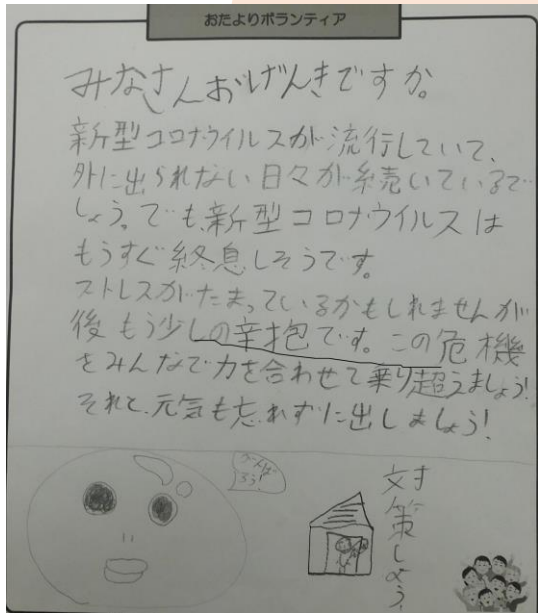 おたよりボランティア
みなさんおげんきですか。
新型コロナウイルスが流行していて、
外に出られない日々が続いているで
しょう。でも、新型コロナウイルスは
もうすぐ終息しそうです。
ストレスがたまっているかもしれませんが
後もう少しの辛抱です。この危機
をみんなで力を合わせて乗り超えましょう!
それと、元気も忘れずに出しましょう!
対策しよう